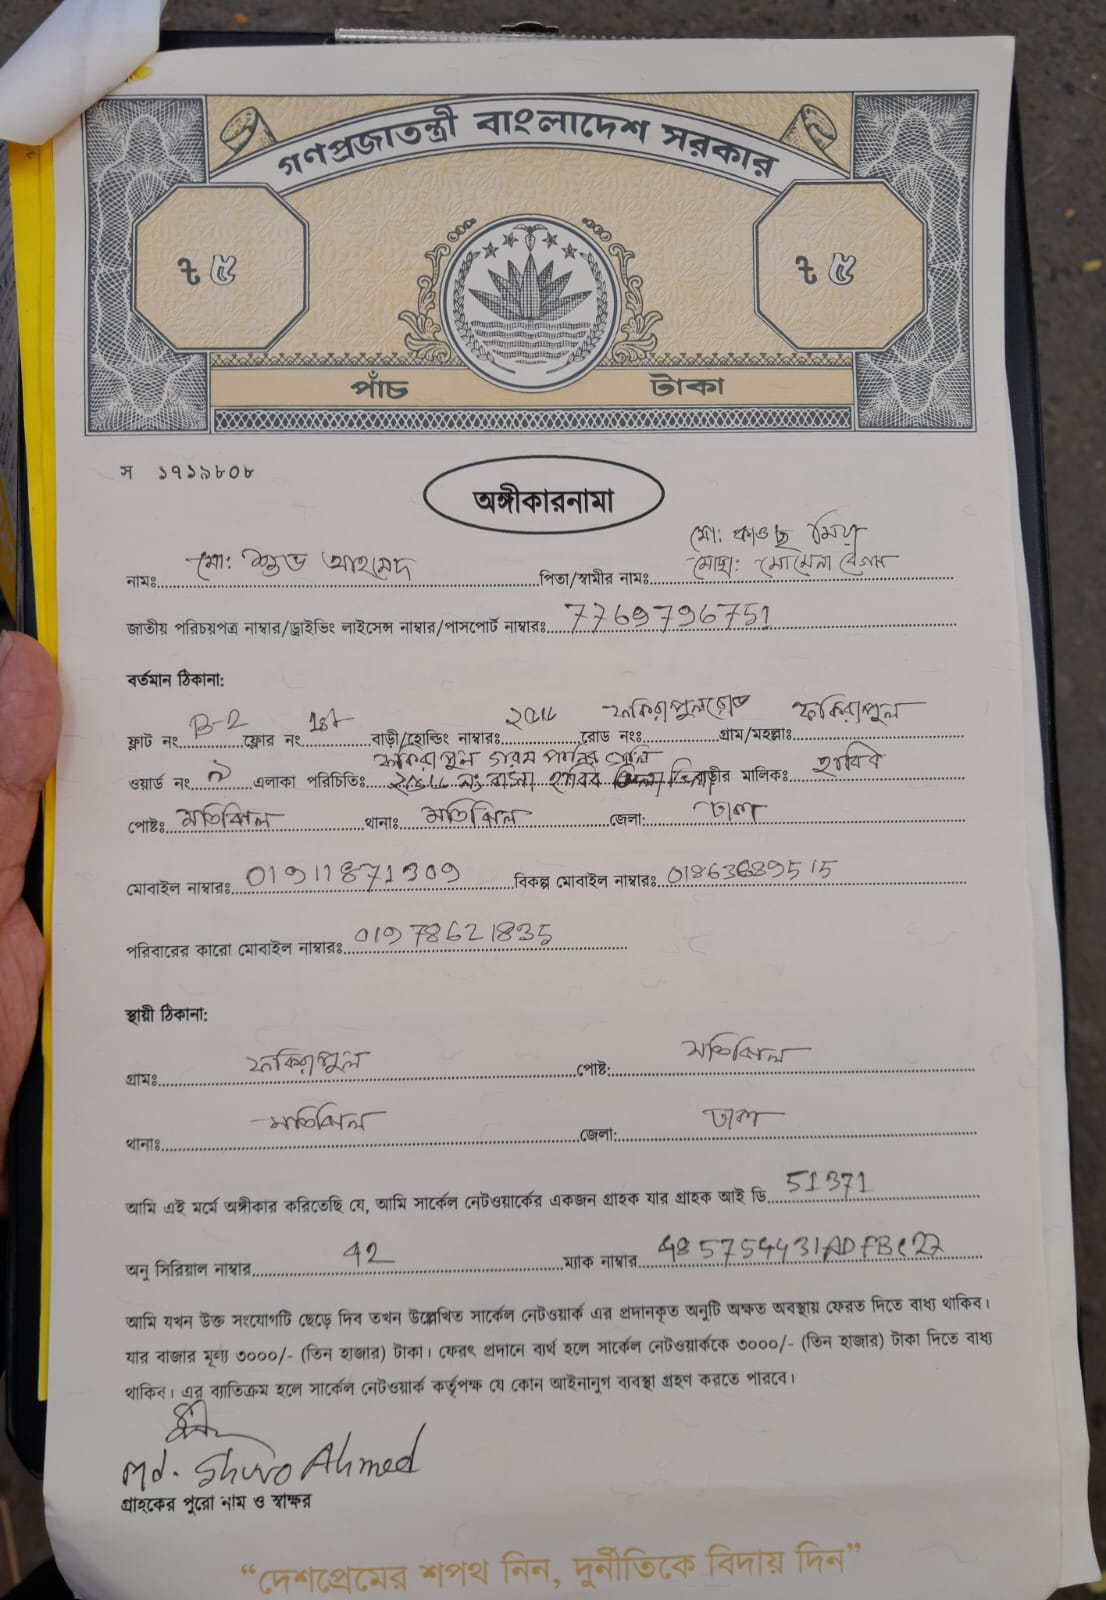 গণপ্রজাতন্ত্রী বাংলাদেশ সরকার
৳ ৫ ৳ ৫
পাঁচ টাকা
স ১৭১৯৮০৮
অঙ্গীকারনামা
মো: কাওছ মিয়া
নামঃ মো: শুভ আহমেদ পিতা/স্বামীর নামঃ মোছা: মোমেনা বেগম
জাতীয় পরিচয়পত্র নাম্বার/ড্রাইভিং লাইসেন্স নাম্বার/পাসপোর্ট নাম্বারঃ 7769796751
বর্তমান ঠিকানা:
ফ্লাট নং B-2 ফ্লোর নং 1st বাড়ী/হোল্ডিং নাম্বারঃ রোড নংঃ ফকিরাপুল রোড গ্রাম/মহল্লাঃ ফকিরাপুল
ফকিরাপুল গরম পানির গলি
ওয়ার্ড নং ৯ এলাকা পরিচিতিঃ নং বাসা হাবিব বাড়ীর মালিকঃ হাবিব
পোষ্টঃ মতিঝিল থানাঃ মতিঝিল জেলা: ঢাকা
মোবাইল নাম্বারঃ 01911871309 বিকল্প মোবাইল নাম্বারঃ
পরিবারের কারো মোবাইল নাম্বারঃ 01978621835
স্থায়ী ঠিকানা:
গ্রামঃ ফকিরাপুল পোষ্ট: মতিঝিল
থানাঃ মতিঝিল জেলা: ঢাকা
আমি এই মর্মে অঙ্গীকার করিতেছি যে, আমি সার্কেল নেটওয়ার্কের একজন গ্রাহক যার গ্রাহক আই ডি 51371
অনু সিরিয়াল নাম্বার 42 ম্যাক নাম্বার
আমি যখন উক্ত সংযোগটি ছেড়ে দিব তখন উল্লেখিত সার্কেল নেটওয়ার্ক এর প্রদানকৃত অনুটি অক্ষত অবস্থায় ফেরত দিতে বাধ্য থাকিব।
যার বাজার মূল্য ৩০০০/- (তিন হাজার) টাকা। ফেরৎ প্রদানে ব্যর্থ হলে সার্কেল নেটওয়ার্ককে ৩০০০/- (তিন হাজার) টাকা দিতে বাধ্য
থাকিব। এর ব্যতিক্রম হলে সার্কেল নেটওয়ার্ক কর্তৃপক্ষ যে কোন আইনানুগ ব্যবস্থা গ্রহণ করতে পারবে।
Md. Shuvo Ahmed
গ্রাহকের পুরো নাম ও স্বাক্ষর
“দেশপ্রেমের শপথ নিন, দুর্নীতিকে বিদায় দিন”